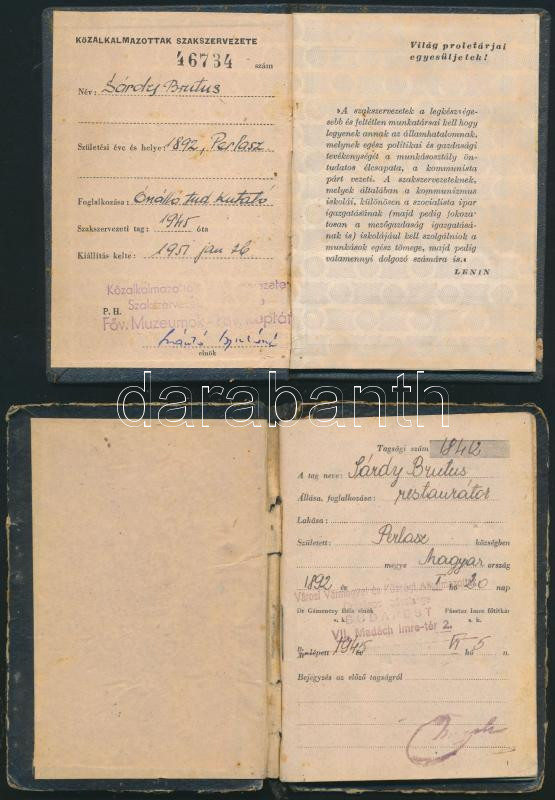 KÖZALKALMAZOTTAK SZAKSZERVEZETE
46734 szám
Név: Sárdy Brutus
Születési éve és helye: 1892, Perlasz
Foglalkozása: Önálló tud. kutató
Szakszervezeti tag: 1945 óta
Kiállítás kelte: 1951 jan 26
Közalkalmazo
Szakszerve
Főv. Múzeumok
P. H.
elnök
Világ proletárjai
egyesüljetek!
»A szakszervezetek a legkészsége-
sebb és feltétlen munkatársai kell hogy
legyenek annak az államhatalomnak,
melynek egész politikai és gazdasági
tevékenységét a munkásosztály ön-
tudatos élcsapata, a kommunista
párt vezeti. A szakszervezeteknek,
melyek általában a kommunizmus
iskolái, különösen a szocialista ipar
igazgatásának (majd pedig fokoza-
tosan a mezőgazdaság igazgatásá-
nak is) iskolájául kell szolgálniok a
munkások egész tömege, majd pedig
valamennyi dolgozó számára is.«
LENIN
darabanth
Tagsági szám 18412
A tag neve: Sárdy Brutus
Állása, foglalkozása: restaurátor
Lakása:
Született: Perlasz községben
megye Magyar ország
1892 év I hó 20 nap
Városi Vármegyei és Községi
Dr Gémenczy Béla elnök Pásztor Imre főtitkár
s. k. s. k.
BUDAPEST
VII. Madách Imre-tér 2.
1945 VI hó 5 n.
Bejegyzés az előző tagságról